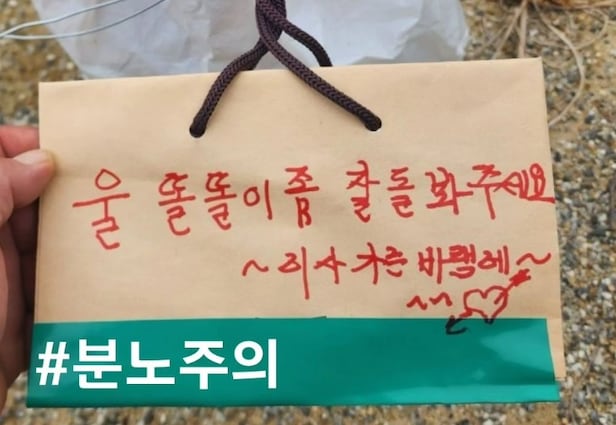 울 똘똘이좀 잘돌봐주세요
~이사가는 바램에~
#분노주의